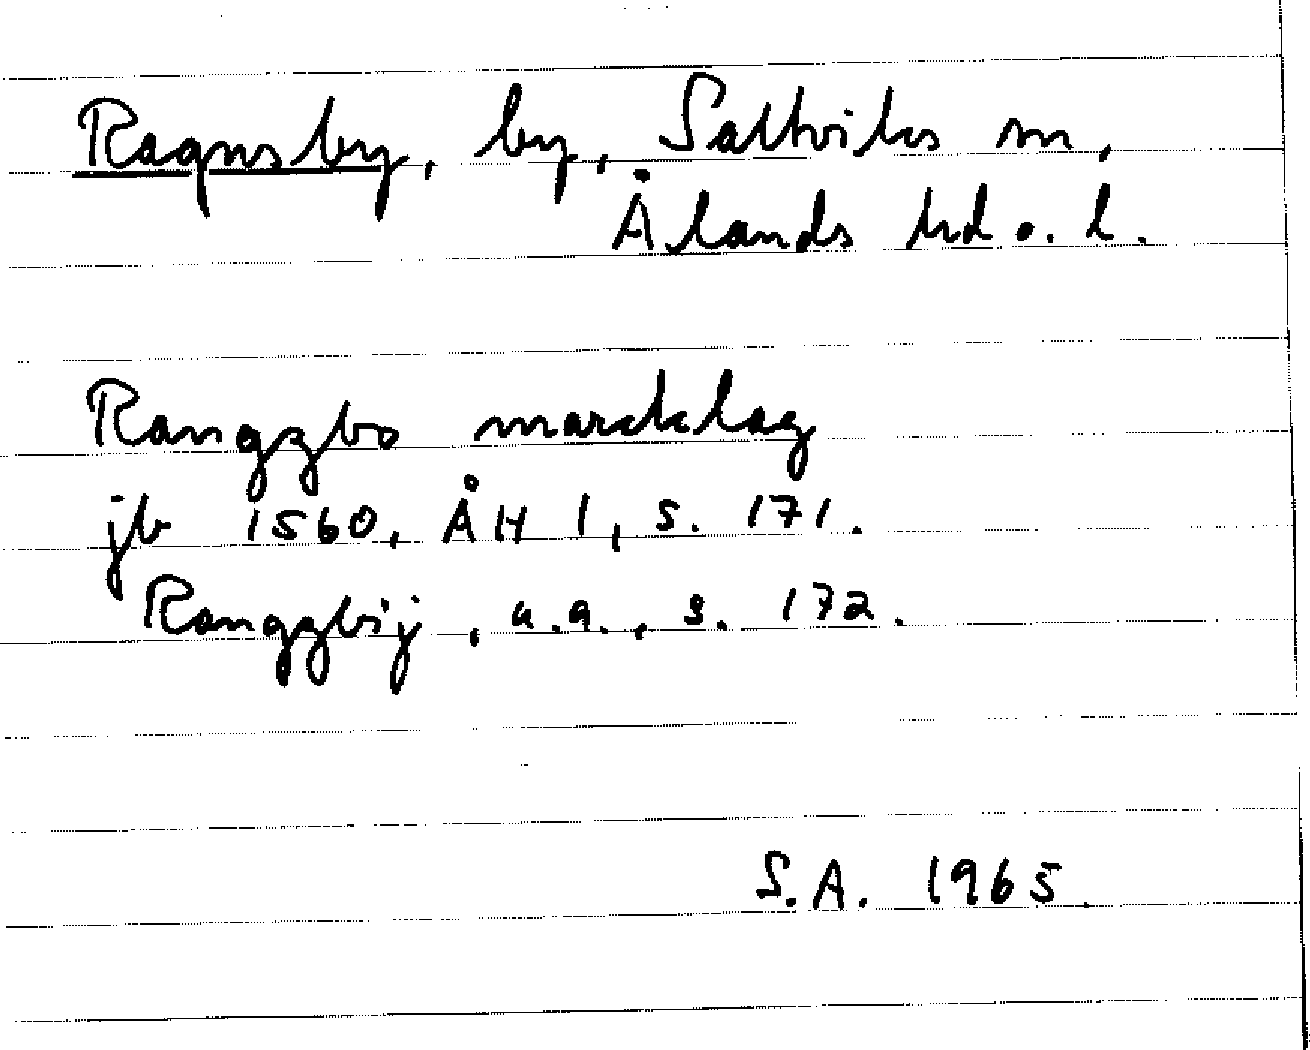 Ragnsby, by, Saltviks sn,
Ålands hd o. l.
Rangzbo marcklag
jb 1560, ÅH 1, s. 171.
Rangzbij, a.a., s. 172.
S.A. 1965.